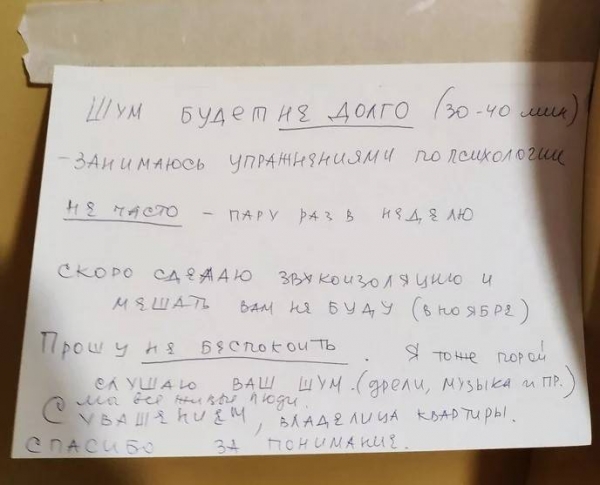 ШУМ БУДЕТ НЕ ДОЛГО (30-40 мин)
- ЗАНИМАЮСЬ УПРАЖНЕНИЯМИ ПО ПСИХОЛОГИИ
НЕ ЧАСТО - ПАРУ РАЗ В НЕДЕЛЮ
СКОРО СДЕЛАЮ ЗВУКОИЗОЛЯЦИЮ И
МЕШАТЬ ВАМ НЕ БУДУ (В НОЯБРЕ)
ПРОШУ НЕ БЕСПОКОИТЬ. Я тоже порой
СЛУШАЮ ВАШ ШУМ. (дрели, музыка и пр.)
мы все живые люди.
С УВАЖЕНИЕМ, ВЛАДЕЛИЦА КВАРТИРЫ.
СПАСИБО ЗА ПОНИМАНИЕ.